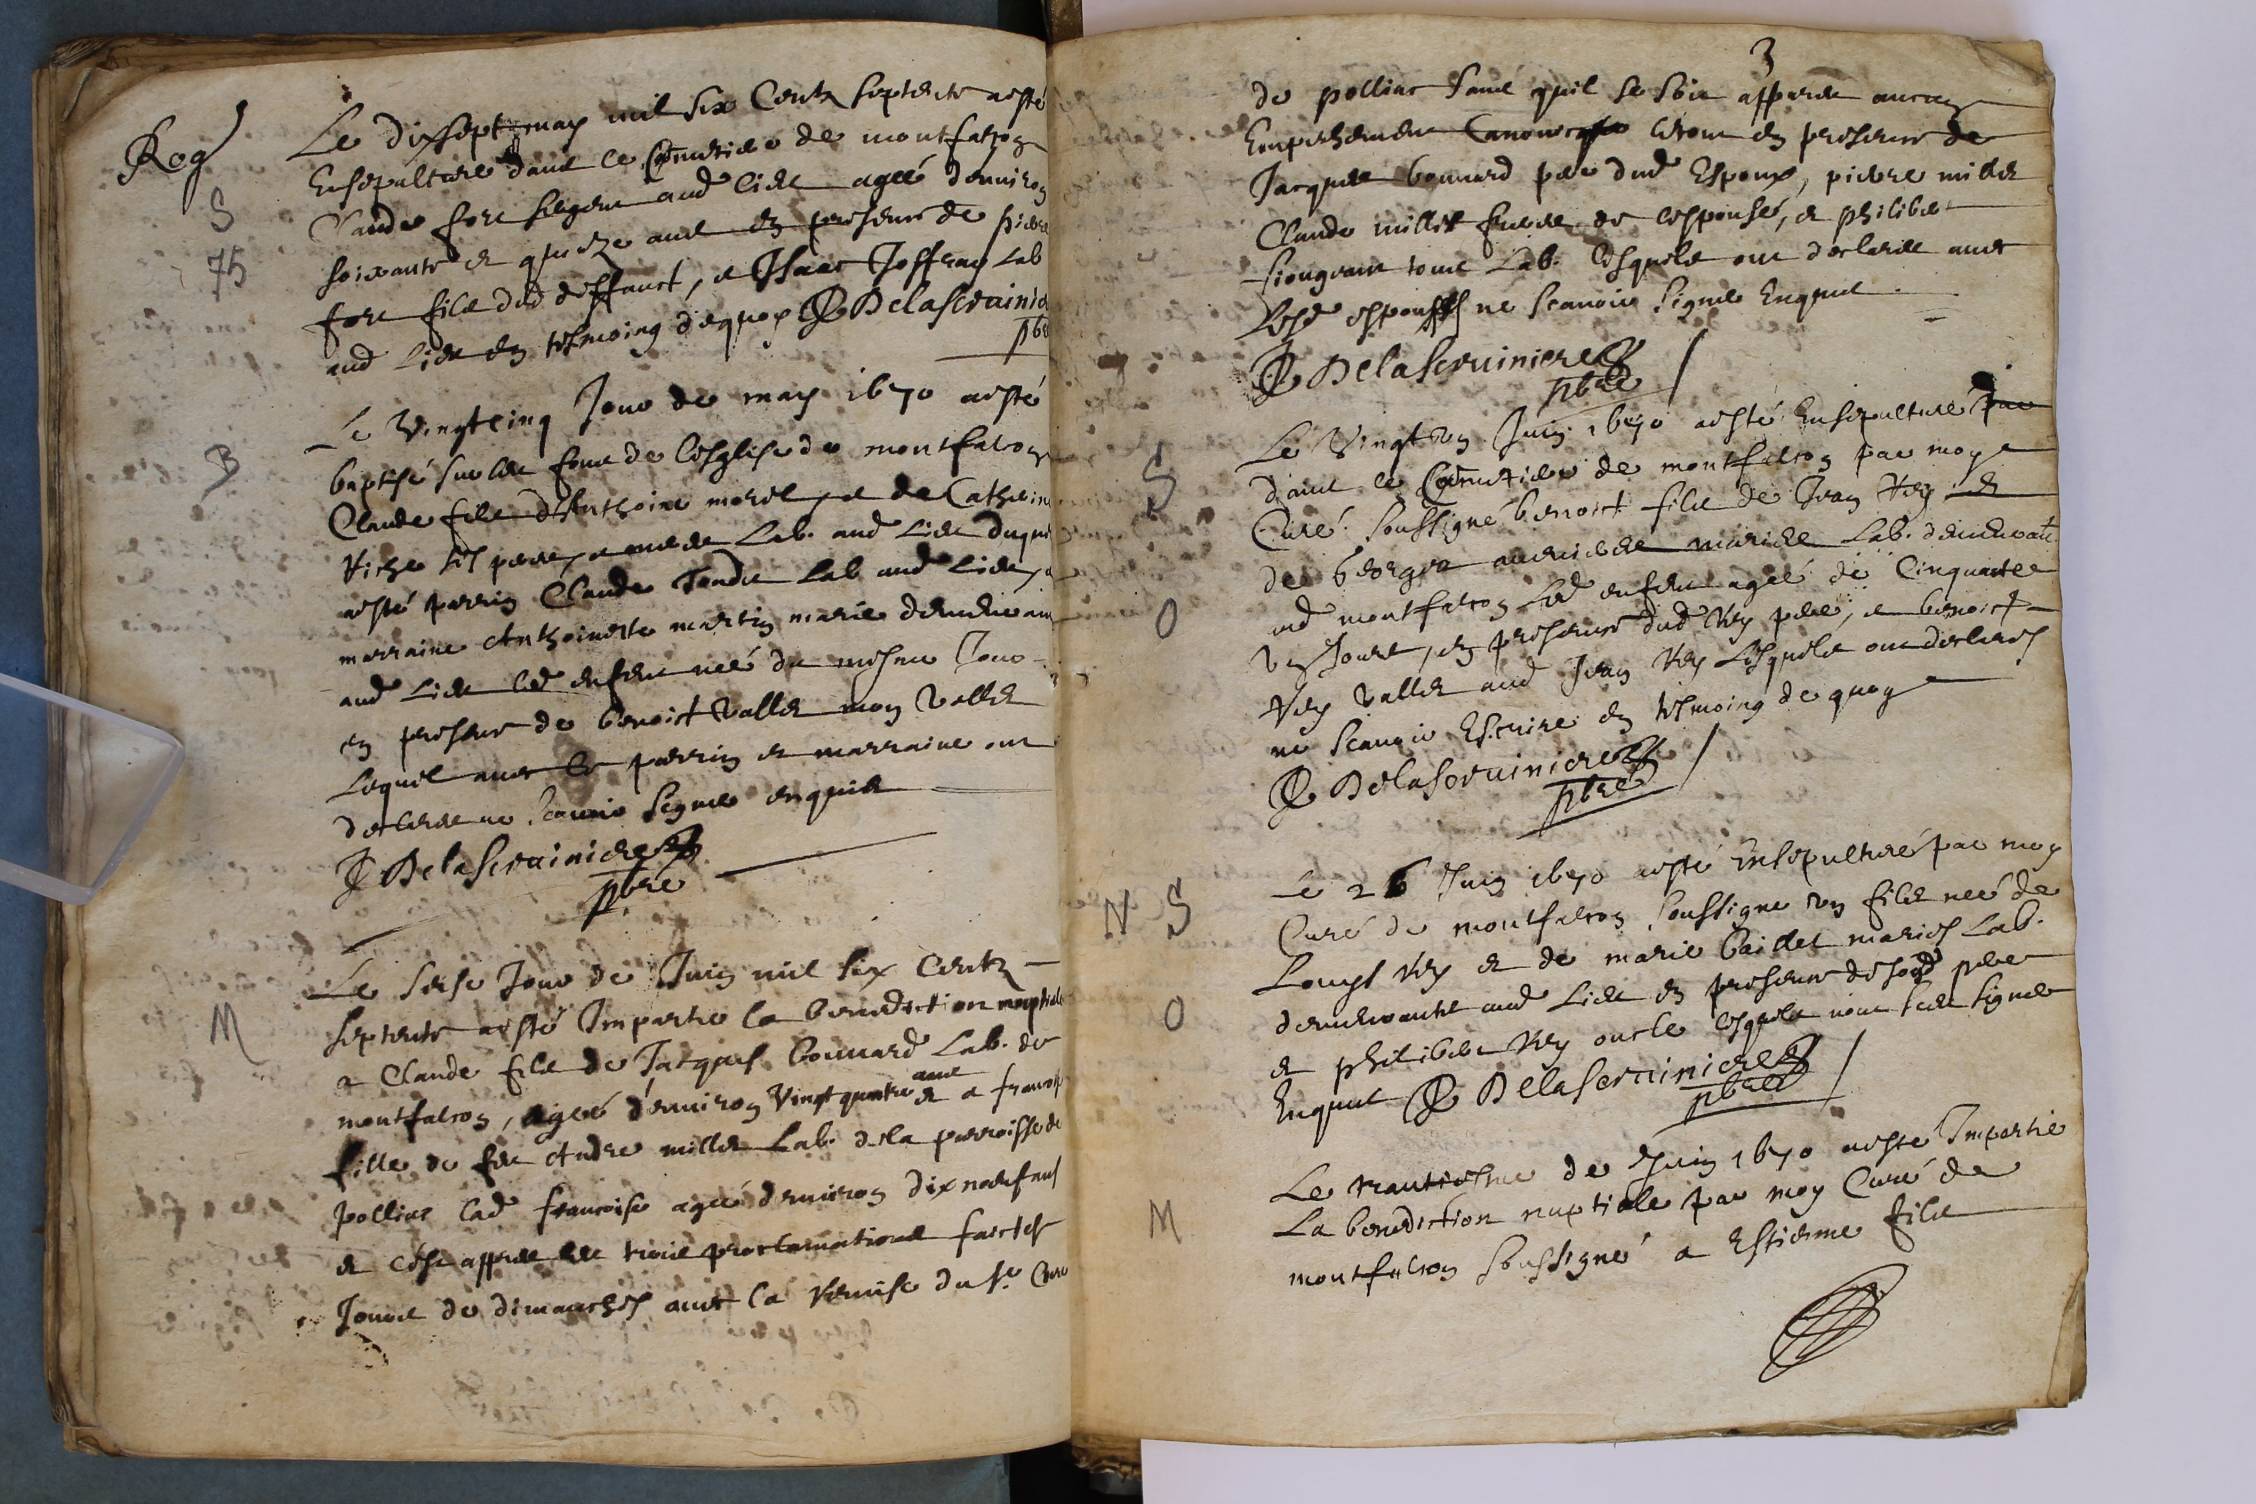 Rog
S
75
Le dixsept may mil six Centz septente a esté
Ensepulturé dans le Coemetiere de montfalcon
Claude fort fregent aud lieu ageé d'environ
soixante et quinze ans en presence de pierre
fort filz dud deffunct, et Isaac Joffray Lab
aud Lieu en tesmoing dequoy J DelaServinie
pbre
B
Le vingtcinq Jour de may 1670 a esté
baptisé sur les fons de lesglise de montfalcon
Claude filz d'Anthoine morel, et de Catherine
ses pere, et mere Lab. aud Lieu duquel
a esté parrin Claude Tondu Lab aud Lieu, et
marraine Anthoinette martin marié demeurant
aud Lieu led enfent neé du mesme Jour
en presence de benoist vallet mon vallet
Lequel avec le parrin et marraine ont
declaré ne scavoir signer enquis
J DelaServiniere
pbre
M
Le sese Jour de Juin mil six Centz
septente a esté Impartie la benediction nuptiale
a Claude filz de Jacques bonnard Lab. de
montfalcon, ageé d'environ vingt quatre ans et a francoise
fille de feu Andre millet Lab. de la parroisse de
polliac lad francoise ageé denviron dix neuf ans
et c'est appres les trois proclamations faictes
Jours de dimanches avec la remise du Sr Curé
3
de polliac sans quil se soit apparu aucung
Empeschement Canonique le tout en presence de
Jacques bonnard pere dud Espoux, pierre millet
Claude millet freres de lespousé, et philibert
tous Lab. Lesquels ont declaré avec
Lesd espoux ne scavoir signer Enquis
J DelaServiniere
pbre
S
O
Le vingt un Juin 1670 a esté Ensepulturé
dans le Coemetiere de montfalcon par moy
Curé soussigné benoist filz de Jean Rey et
de george mariés Lab. demeurant
ud montfalcon Led enfent ageé de Cinquante
un Jours, en presence dud Rey pere, et benoist
Rey vallet aud Jean Rey Lesquels ont declarés
ne scavoir Escrire en tesmoing de quoy
J DelaServiniere
pbre
N S
O
Le 26 Juin 1670 a esté Ensepulturé par moy
Curé de montfalcon soussigné un filz neé de
Louys Rey et de marie baillet mariés Lab.
demeurants aud Lieu en presence desd pere
et philibert Rey oncle Lesquels nont sceu signer
Enquis J DelaServiniere
pbre
M
Le trantiesme de Juin 1670 a esté Impartie
La benediction nuptiale par moy Curé de
montfalcon soussigné a Estienne filz